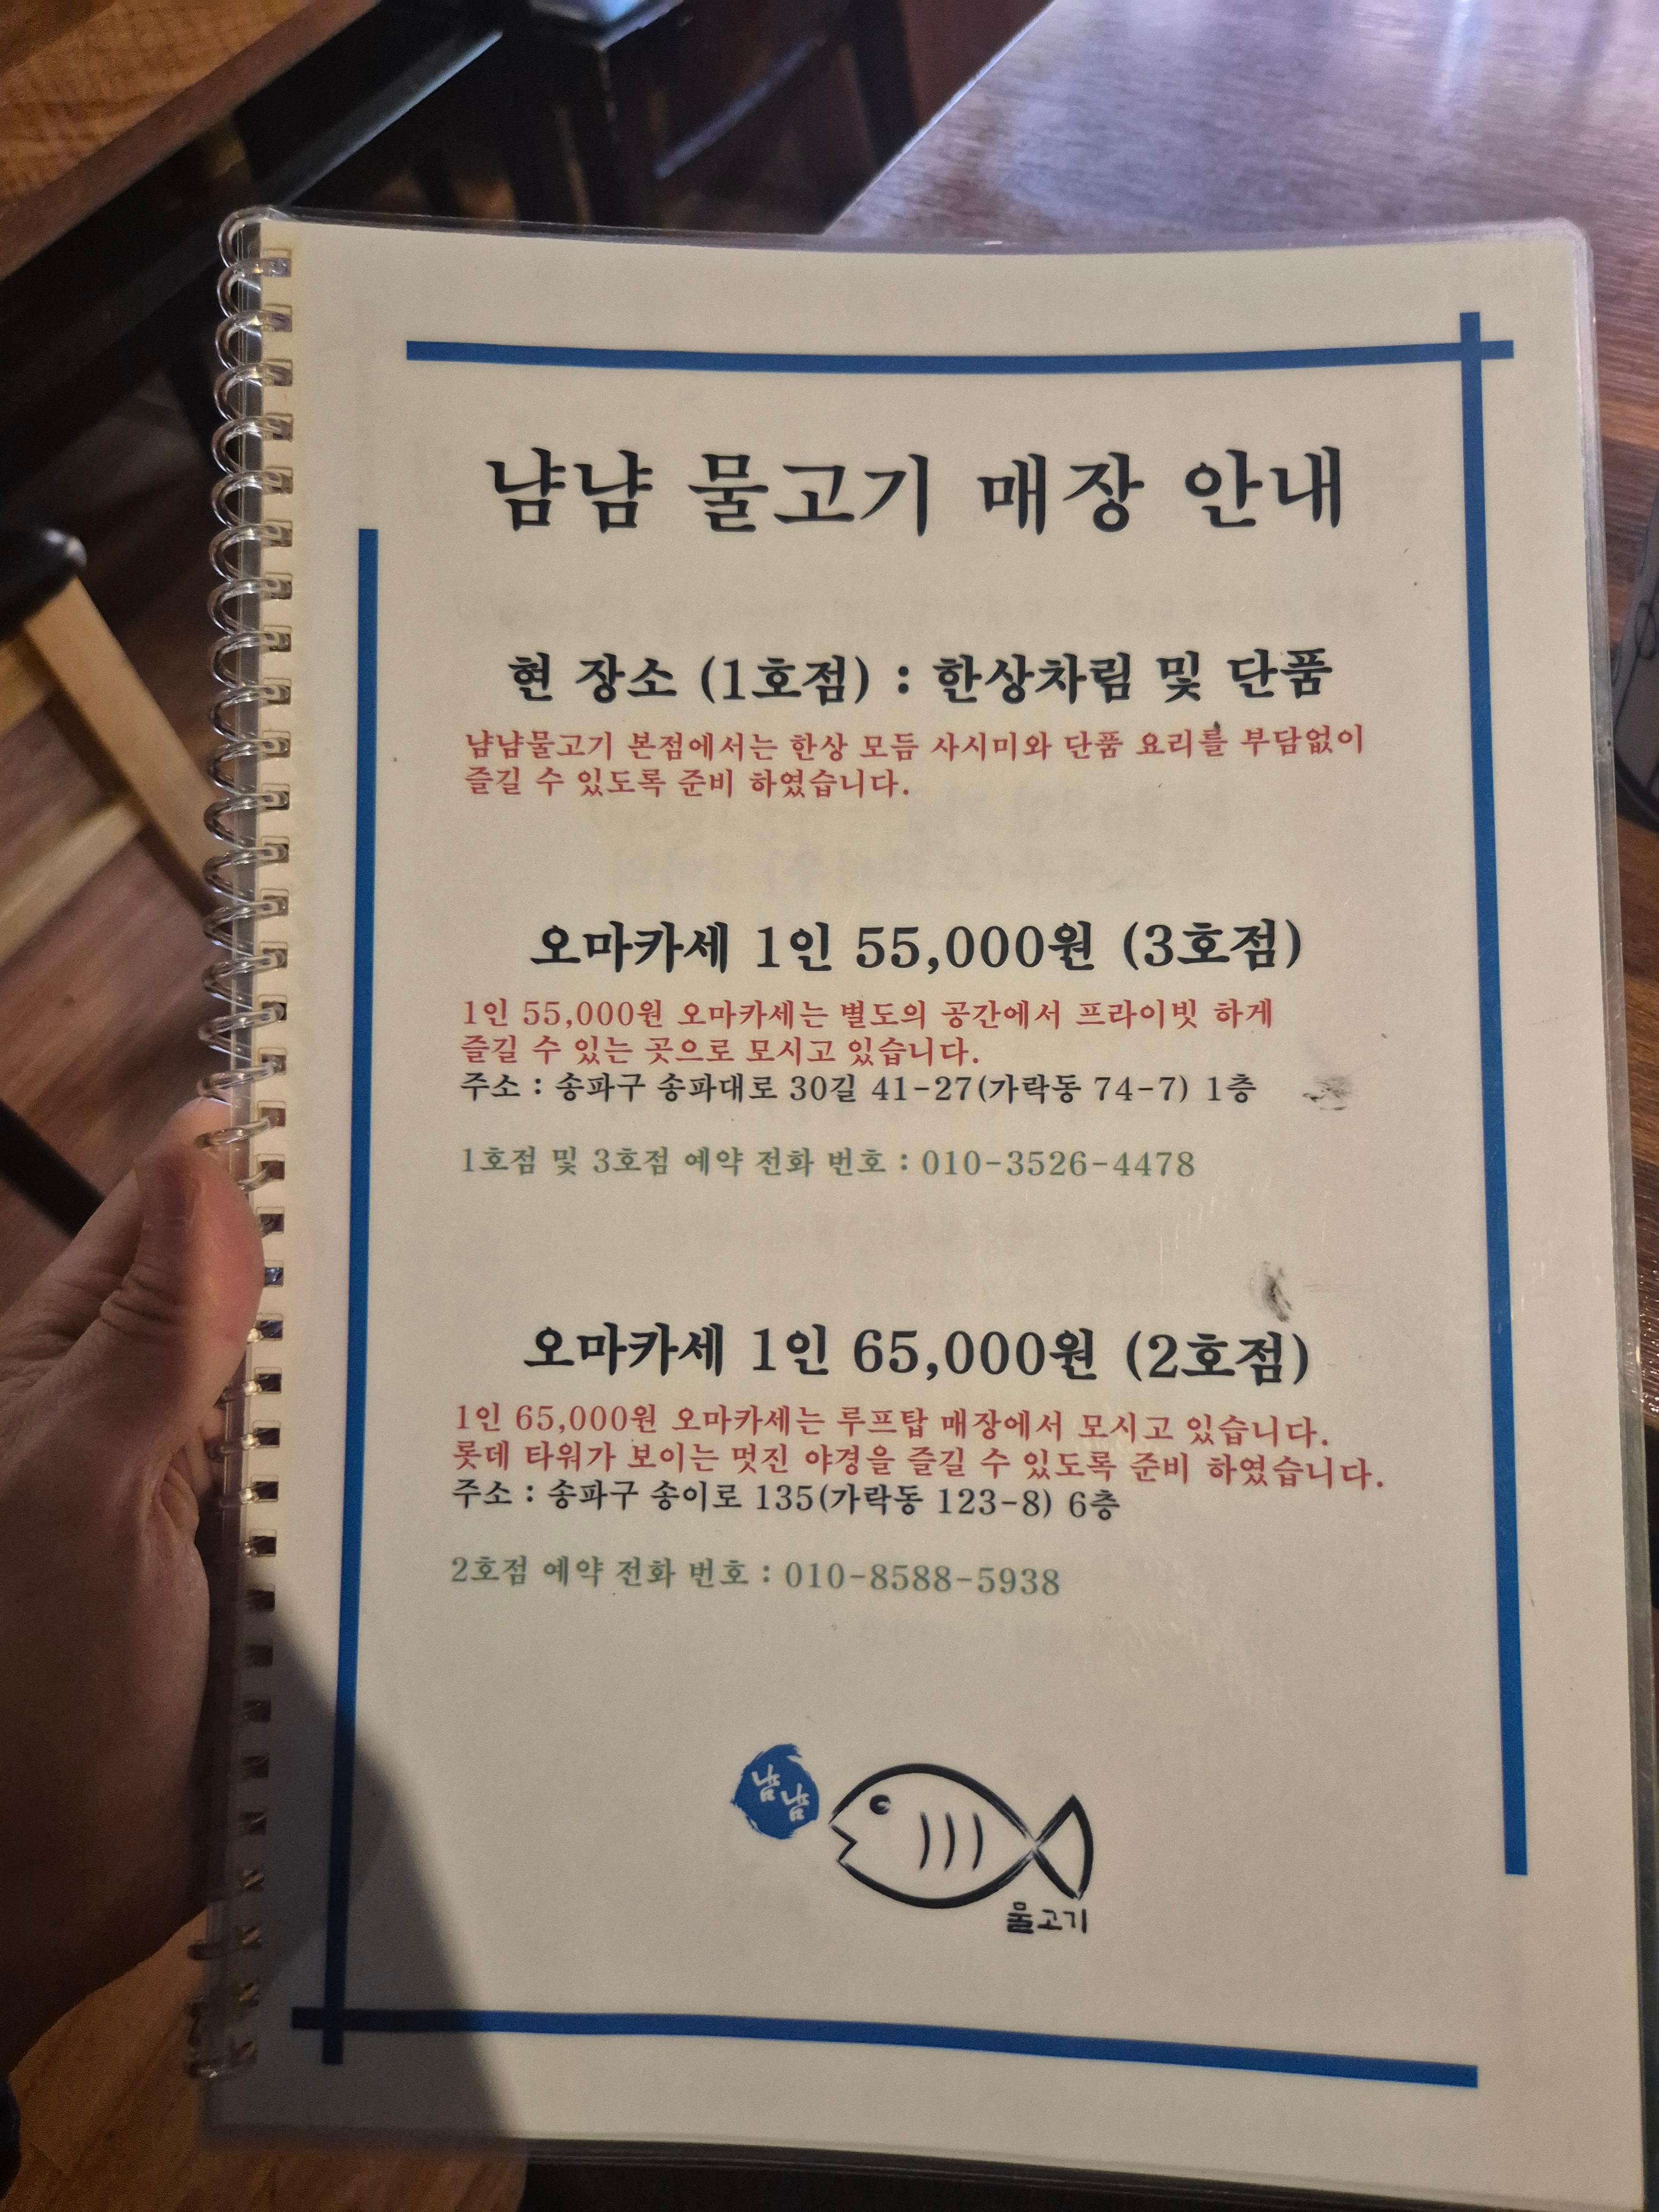 냠냠 물고기 매장 안내
현 장소 (1호점) : 한상차림 및 단품
냠냠물고기 본점에서는 한상 모듬 사시미와 단품 요리를 부담없이
즐길 수 있도록 준비 하였습니다.
오마카세 1인 55,000원 (3호점)
1인 55,000원 오마카세는 별도의 공간에서 프라이빗 하게
즐길 수 있는 곳으로 모시고 있습니다.
주소 : 송파구 송파대로 30길 41-27(가락동 74-7) 1층
1호점 및 3호점 예약 전화 번호 : 010-3526-4478
오마카세 1인 65,000원 (2호점)
1인 65,000원 오마카세는 루프탑 매장에서 모시고 있습니다.
롯데 타워가 보이는 멋진 야경을 즐길 수 있도록 준비 하였습니다.
주소 : 송파구 송이로 135(가락동 123-8) 6층
2호점 예약 전화 번호 : 010-8588-5938
냠냠
물고기